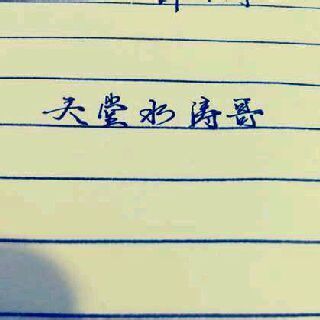 天堂水涛哥